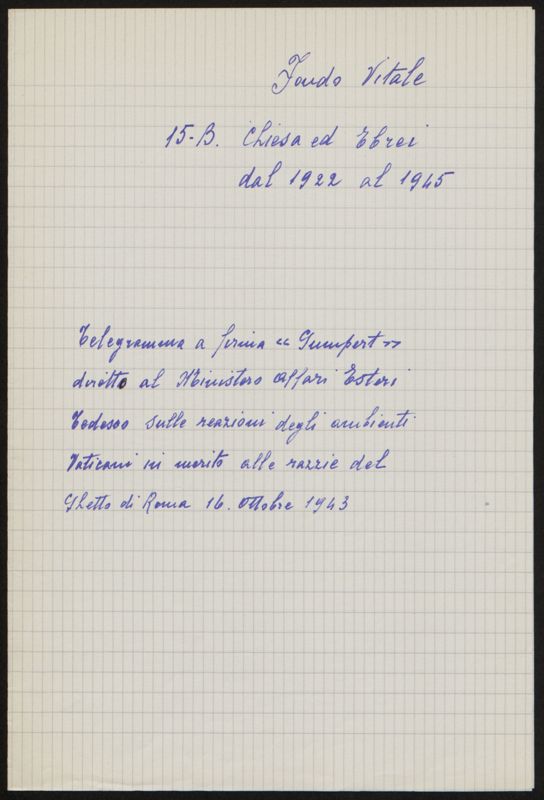 Fondo Vitale
15-B. Chiesa ed Ebrei
dal 1922 al 1945
Telegramma a firma « Gumpert »
diretto al Ministero Affari Esteri
Tedesco sulle reazioni degli ambienti
Vaticani in merito alle razzie del
Ghetto di Roma 16. ottobre 1943